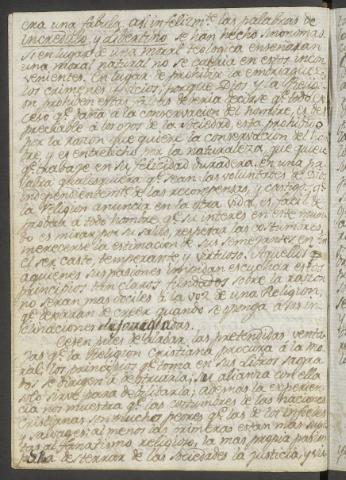 era una fabula, asi infelizmte. las palabras de
incredulo, y libertino se han hecho sinonimas.
Si en lugar de una moral teologica enseñaran
una moral natural no se caeria en estos incon
venientes. En lugar de prohivir la embriaguez,
los crimenes y vicios, porque Dios y la Relig.
on prohiven estas faltas deveria decirse qe. todo ex
ceso qe. daña a la conservacion del hombre, es des
preciable a los ojos de la sociedad, esta prohivido
por la razon que quiere la conservacion del hom
bre, y es entredicho por la naturaleza que quiere
qe. trabaje en su felicidad duradera. en una pa
labra qualesquiera qe. sean las voluntades de Dios
independientemente de las recompensas, y castigos qe.
la Religion anuncia en la otra vida, es facil de
probar a todo hombre qe. su interes en este mun
do es mirar por su salud, respetar las costumbres,
merecerse la estimacion de sus semejantes en fin
el ser casto, temperante y virtuoso. Aquellos
a quienes sus pasiones impidan escuchar estos
principios tan claros fundados sobre la razon
no seran mas dociles a la voz de una Religion
qe. dexaran de creer quando se oponga a sus in
clinaciones desarregladas.
Cesen pues de alabar las pretendidas venta
jas qe. la Religion Cristiana procura a la mo
ral; los principios qe. toma en sus libros sagra
dos se dirigen a destruirla; su alianza con ella
solo sirve para devilitarla; ademas la experien
cia nos muestra qe. las costumbres de las naciones
Cristianas son mucho peores qe. las de los infieles
y salvages; al menos las primeras estan mas suje
tas al fanatismo religioso, la mas propia pasion
para desterrar de las sociedades la justicia, y vir